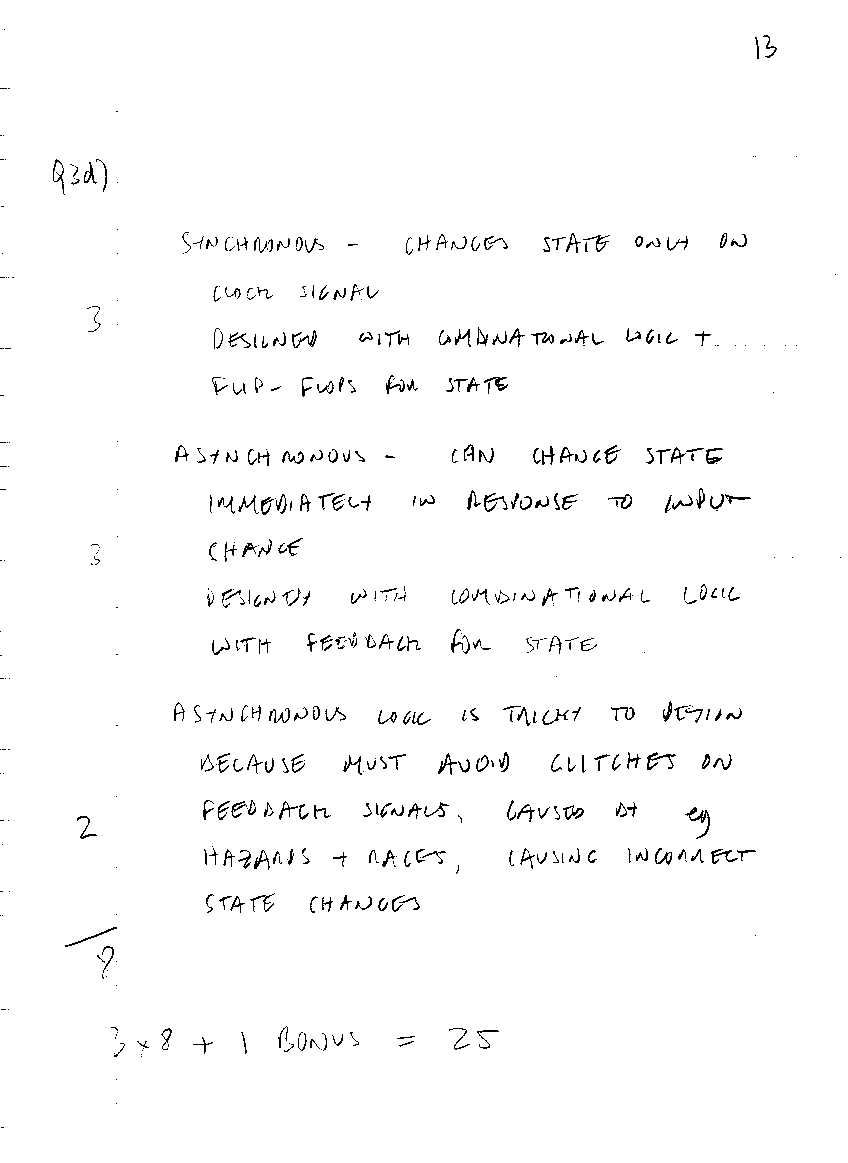 13
Q3d)
SYNCHRONOUS - CHANGES STATE ONLY ON
CLOCK SIGNAL
3
DESIGNED WITH COMBINATIONAL LOGIC +
FLIP-FLOPS FOR STATE
ASYNCHRONOUS - CAN CHANGE STATE
IMMEDIATELY IN RESPONSE TO INPUT
3 CHANGE
DESIGNED WITH COMBINATIONAL LOGIC
WITH FEEDBACK FOR STATE
ASYNCHRONOUS LOGIC IS TRICKY TO DESIGN
BECAUSE MUST AVOID GLITCHES ON
FEEDBACK SIGNALS, CAUSED BY eg
2
HAZARDS + RACES, CAUSING INCORRECT
STATE CHANGES
8
3 × 8 + 1 BONUS = 25